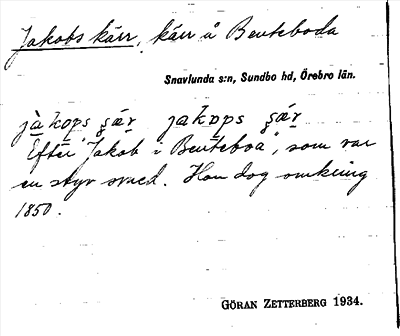 Jakobs kärr, kärr å Benteboda
Snavlunda s:n, Sundbo hd, Örebro län.
jàkops çær jakpps çær
Efter "Jakob i Benteboa", som var
en styv smed. Han dog omkring
1850.
GÖRAN ZETTERBERG 1934.